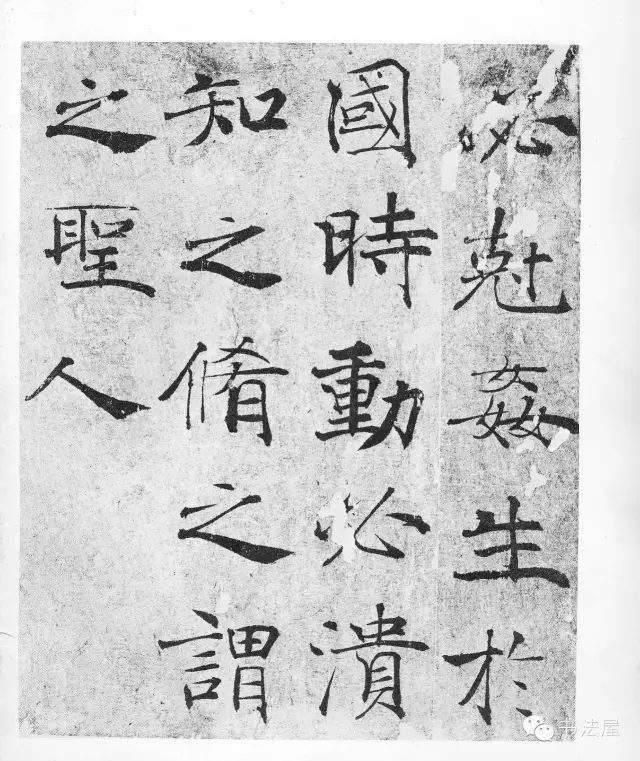 必尅姦生於
國時動必潰
知之脩之謂
之聖人
书法屋